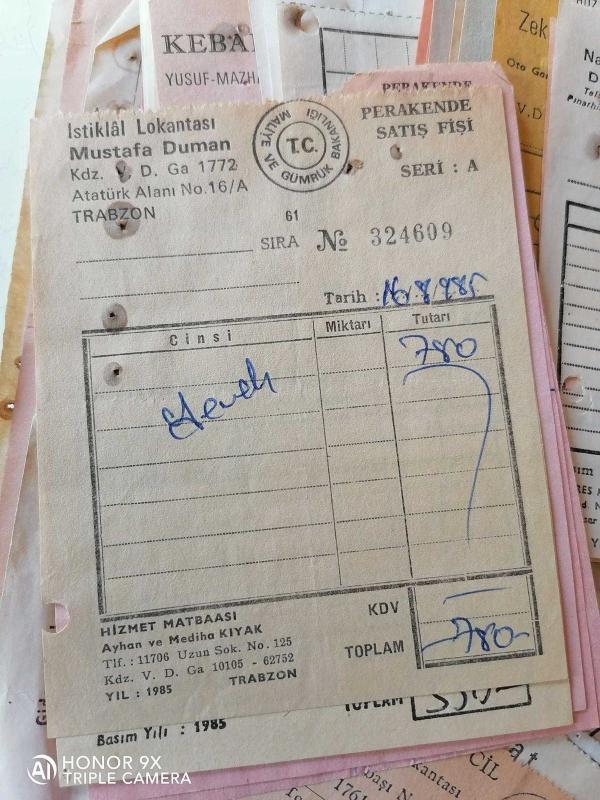 KEBA
YUSUF-MAZHA
Zek
Oto Ga
V.D
PERAKENDE
İstiklâl Lokantası
Mustafa Duman
Kdz. V. D. Ga 1772
Atatürk Alanı No.16/A
TRABZON
T.C.
MALİYE VE GÜMRÜK BAKANLIĞI
PERAKENDE
SATIŞ FİŞİ
SERİ : A
61
SIRA № 324609
Tarih : 16.8.985
Cinsi Miktarı Tutarı
Yemek 780
KDV
TOPLAM 780
HİZMET MATBAASI
Ayhan ve Mediha KIYAK
Tlf. : 11706 Uzun Sok. No. 125
Kdz. V. D. Ga 10105 - 62752
YIL : 1985 TRABZON
TOPLAM
Basım Yılı : 1985
CİL
HONOR 9X
TRIPLE CAMERA